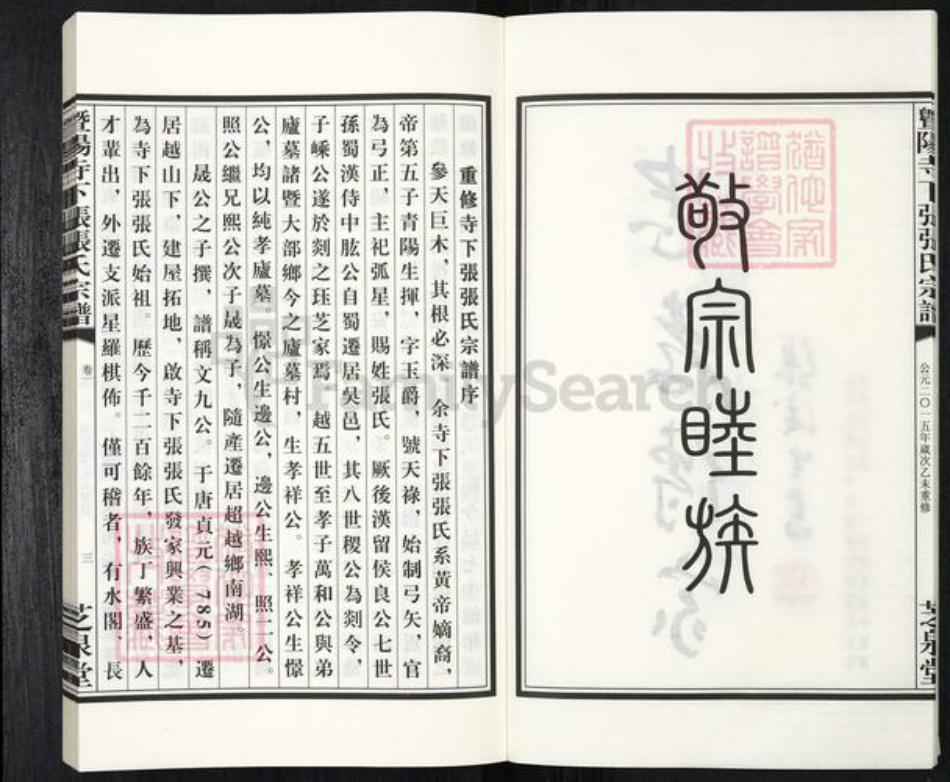 暨陽寺下張張氏宗譜
公元二〇一五年歲次乙未重修
芝泉堂
敬宗睦族
重修寺下張張氏宗譜序
參天巨木，其根必深　余寺下張張氏系黃帝嫡裔，
帝第五子青陽生揮，字玉爵，號天祿，始制弓矢，官
為弓正，主祀弧星，賜姓張氏。厥後漢留侯良公七世
孫蜀漢侍中肱公自蜀遷居吳邑，其八世稷公為剡令，
子嵊公遂於剡之珏芝家焉　越五世至孝子萬和公與弟
廬墓諸暨大部鄉今之廬墓村，生孝祥公。孝祥公生憬
公，均以純孝廬墓。憬公生邊公，邊公生熙、照二公。
照公繼兄熙公次子晟為子，隨產遷居超越鄉南湖。
晟公之子撰，譜稱文九公。于唐貞元（785）遷
居越山下，建屋拓地，啟寺下張張氏發家興業之基，
為寺下張張氏始祖。歷今千二百餘年，族丁繁盛，人
才輩出，外遷支派星羅棋佈。僅可稽者，有水閣、長
暨陽寺下張張氏宗譜
卷一
三
芝泉堂
FamilySearch